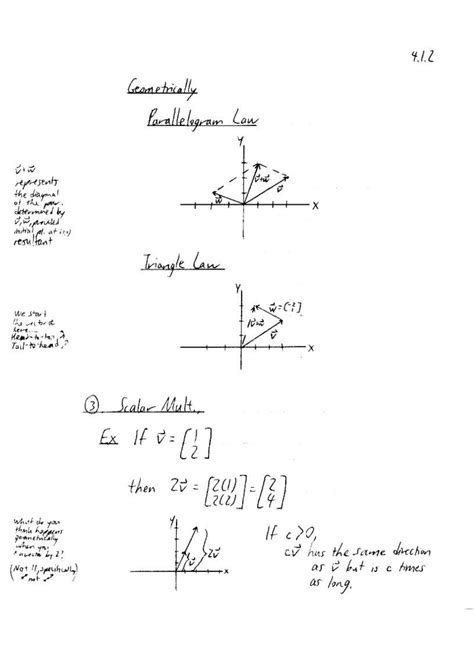 4.1.2
Geometrically
Parallelogram Law
y
v⃗+w⃗
v⃗
w⃗
x
represents
the diagonal
of the par.
determined by
v⃗, w⃗, provided
initial pt. at
resultant
Triangle Law
y
w⃗=[-2
1]
v⃗+w⃗
v⃗
x
We start
the vector w⃗
here...
Head-to-tail?
Tail-to-head?
③. Scalar Mult.
Ex If v⃗ = [1
2]
then 2v⃗ = [2(1)
2(2)] = [2
4]
What do you
think happens
geometrically
when you
by 2?
(Not 11, specifically)
not
y
v⃗
2v⃗
x
If c>0,
cv⃗ has the same direction
as v⃗ but is c times
as long.